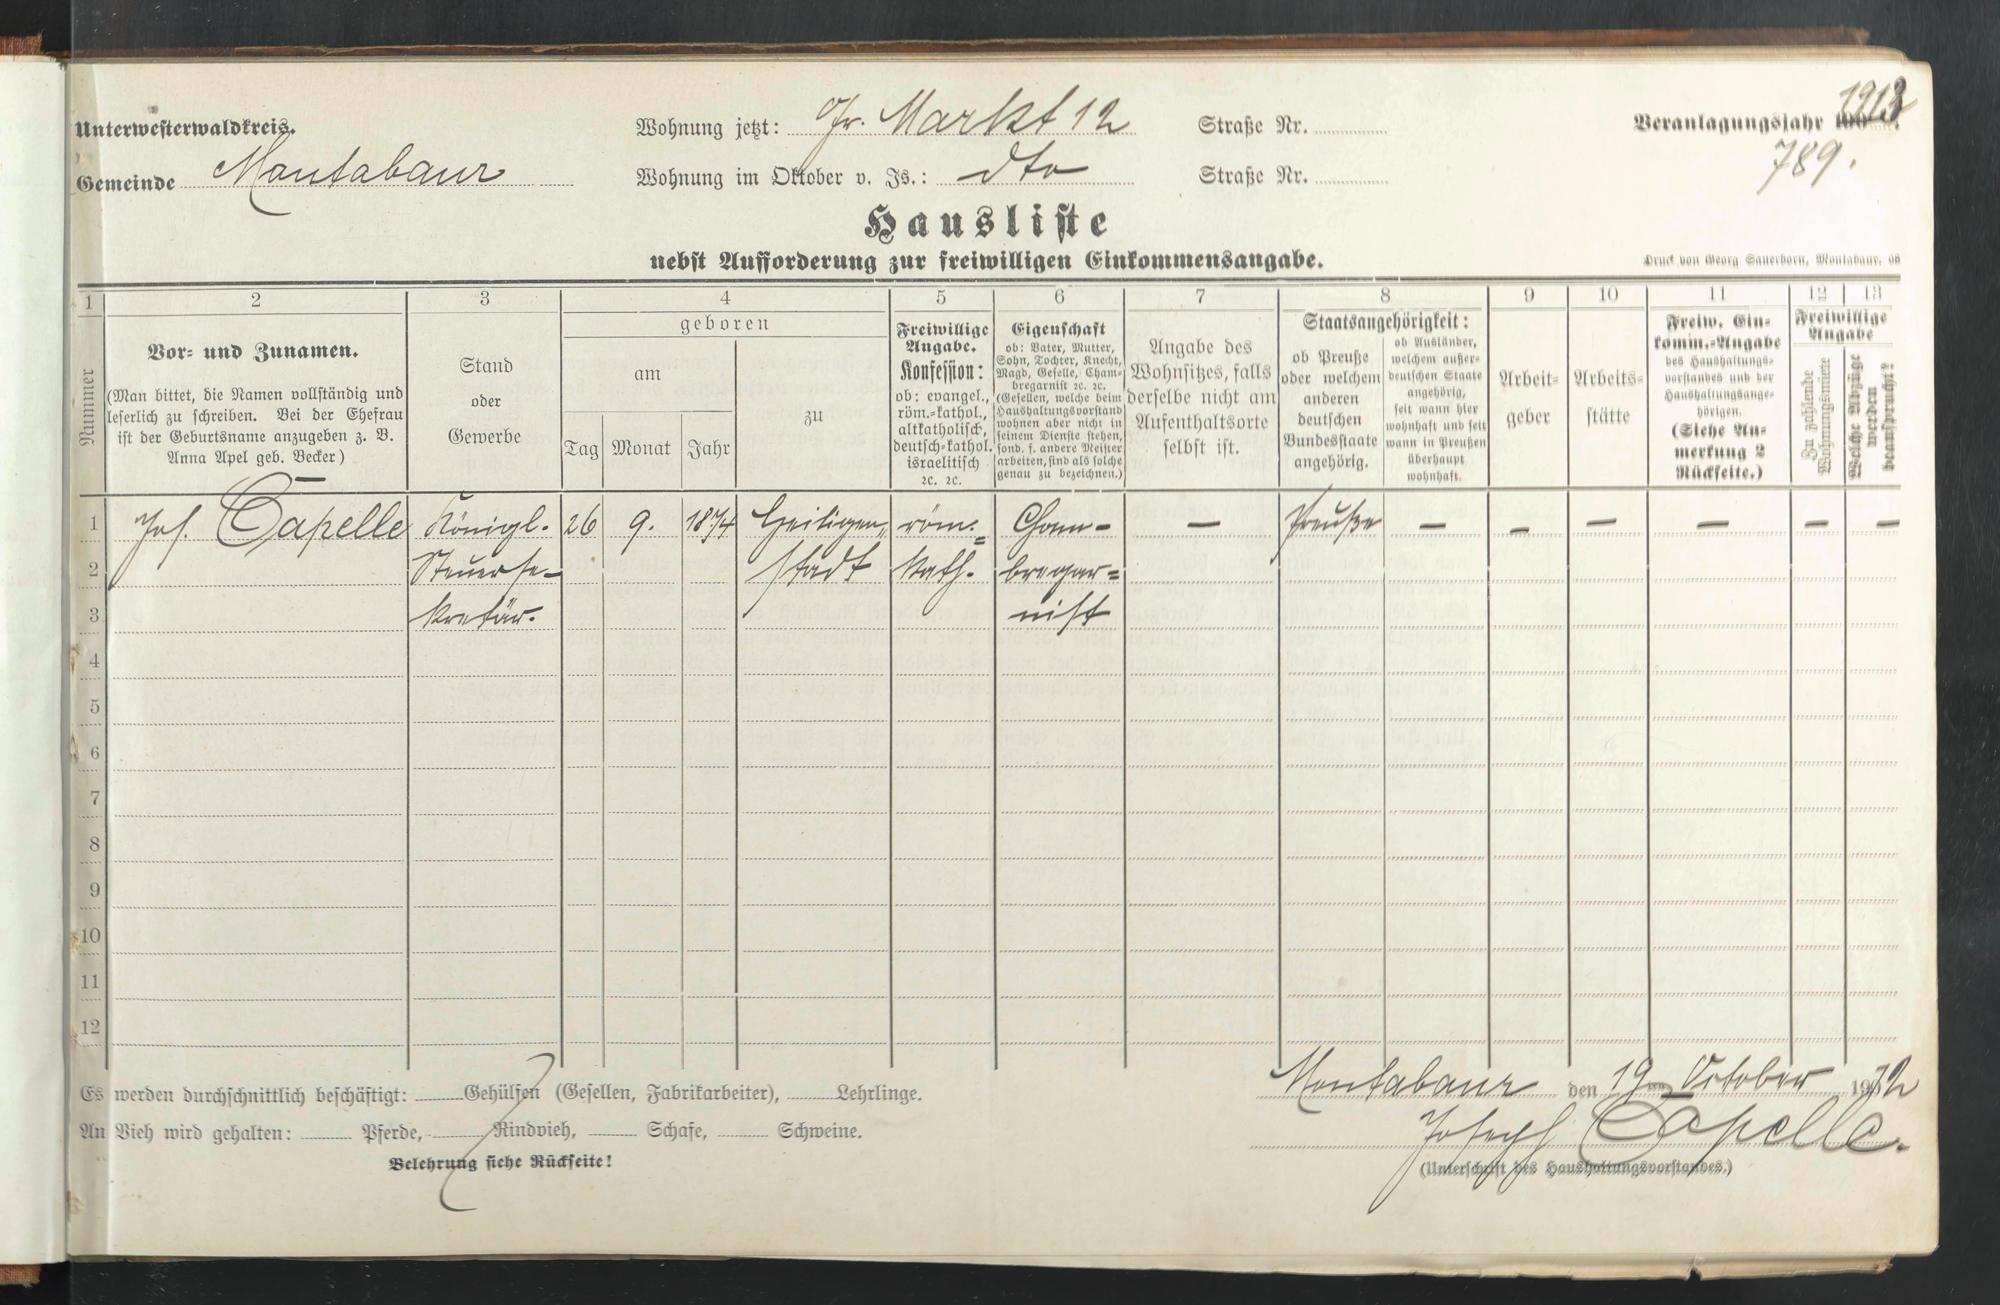 Unterwesterwaldkreis.
Gemeinde Montabaur
Wohnung jetzt: Gr. Markt 12 Straße Nr.
Wohnung im Oktober v. Js.: dto Straße Nr.
Veranlagungsjahr 1913
789.
Hausliste
nebst Aufforderung zur freiwilligen Einkommensangabe.
Druck von Georg Sauerborn, Montabaur, 06
1 2 3 4 5 6 7 8 9 10 11 12 13
Nummer
Vor- und Zunamen.
(Man bittet, die Namen vollständig und
leserlich zu schreiben. Bei der Ehefrau
ist der Geburtsname anzugeben z. B.
Anna Apel geb. Becker)
Stand
oder
Gewerbe
geboren
am
Tag Monat Jahr
zu
Freiwillige
Angabe.
Konfession:
ob: evangel.,
röm.-kathol.,
altkatholisch,
deutsch-kathol.
israelitisch
2c. 2c.
Eigenschaft
ob: Vater, Mutter,
Sohn, Tochter, Knecht,
Magd, Geselle, Cham-
bregarnist 2c. 2c.
(Gesellen, welche beim
Haushaltungsvorstand
wohnen aber nicht in
seinem Dienste stehen,
sond. f. andere Meister
arbeiten, sind als solche
genau zu bezeichnen.)
Angabe des
Wohnsitzes, falls
derselbe nicht am
Aufenthaltsorte
selbst ist.
Staatsangehörigkeit:
ob Preuße
oder welchem
anderen
deutschen
Bundesstaate
angehörig.
ob Ausländer,
welchem außer-
deutschen Staate
angehörig,
seit wann hier
wohnhaft und seit
wann in Preußen
überhaupt
wohnhaft.
Arbeit-
geber
Arbeits-
stätte
Freiw. Ein-
komm.-Angabe
des Haushaltungs-
vorstandes und der
Haushaltungsange-
hörigen.
(Siehe An-
merkung 2
Rückseite.)
Freiwillige
Angabe
Zu zahlende
Wohnungsmiete
Welche Abzüge
werden
beansprucht?
1 Jos. Capelle Königl. 26 9. 1874 Heiligen- röm.= Cham- — Preuße — — — — — —
2 Steuerse- stadt kath. bregar=
3 kretär. nist
4
5
6
7
8
9
10
11
12
Es werden durchschnittlich beschäftigt: Gehülfen (Gesellen, Fabrikarbeiter), Lehrlinge.
An Vieh wird gehalten: Pferde, Rindvieh, Schafe, Schweine.
Belehrung siehe Rückseite!
Montabaur den 19ten October 1912
Joseph Capelle.
(Unterschrift des Haushaltungsvorstandes.)